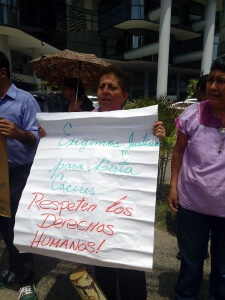 Exigimos Justicia
para Berta
Cáceres
Respeten los
Derechos
HUMANOS!